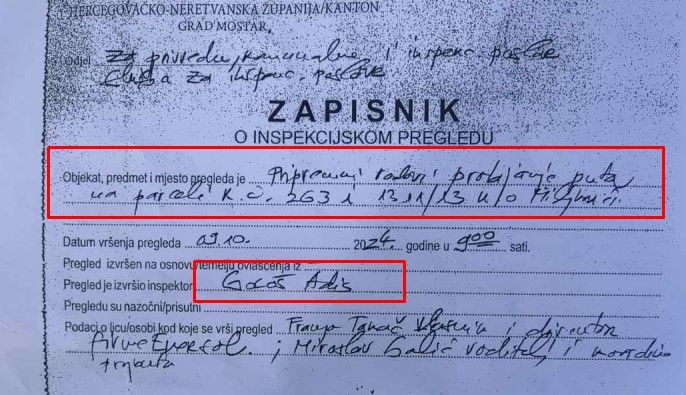 HERCEGOVAČKO-NERETVANSKA ŽUPANIJA/KANTON
GRAD MOSTAR
Odjel za privredu, komunalne i inspekc. poslove
Služba za inspekc. poslove
ZAPISNIK
O INSPEKCIJSKOM PREGLEDU
Objekat, predmet i mjesto pregleda je Pripremni radovi probijanje puta
na parceli k.č. 263 i 1311/13 k/o
Datum vršenja pregleda 09.10. 2024. godine u 9 00 sati.
Pregled izvršen na osnovu/temelju ovlašćenja iz
Pregled je izvršio inspektor Gološ Adis
Pregledu su nazočni/prisutni
Podaci o licu/osobi kod koje se vrši pregled Franjo vlasnik i direktor
firme ; Miroslav Galić voditelj i